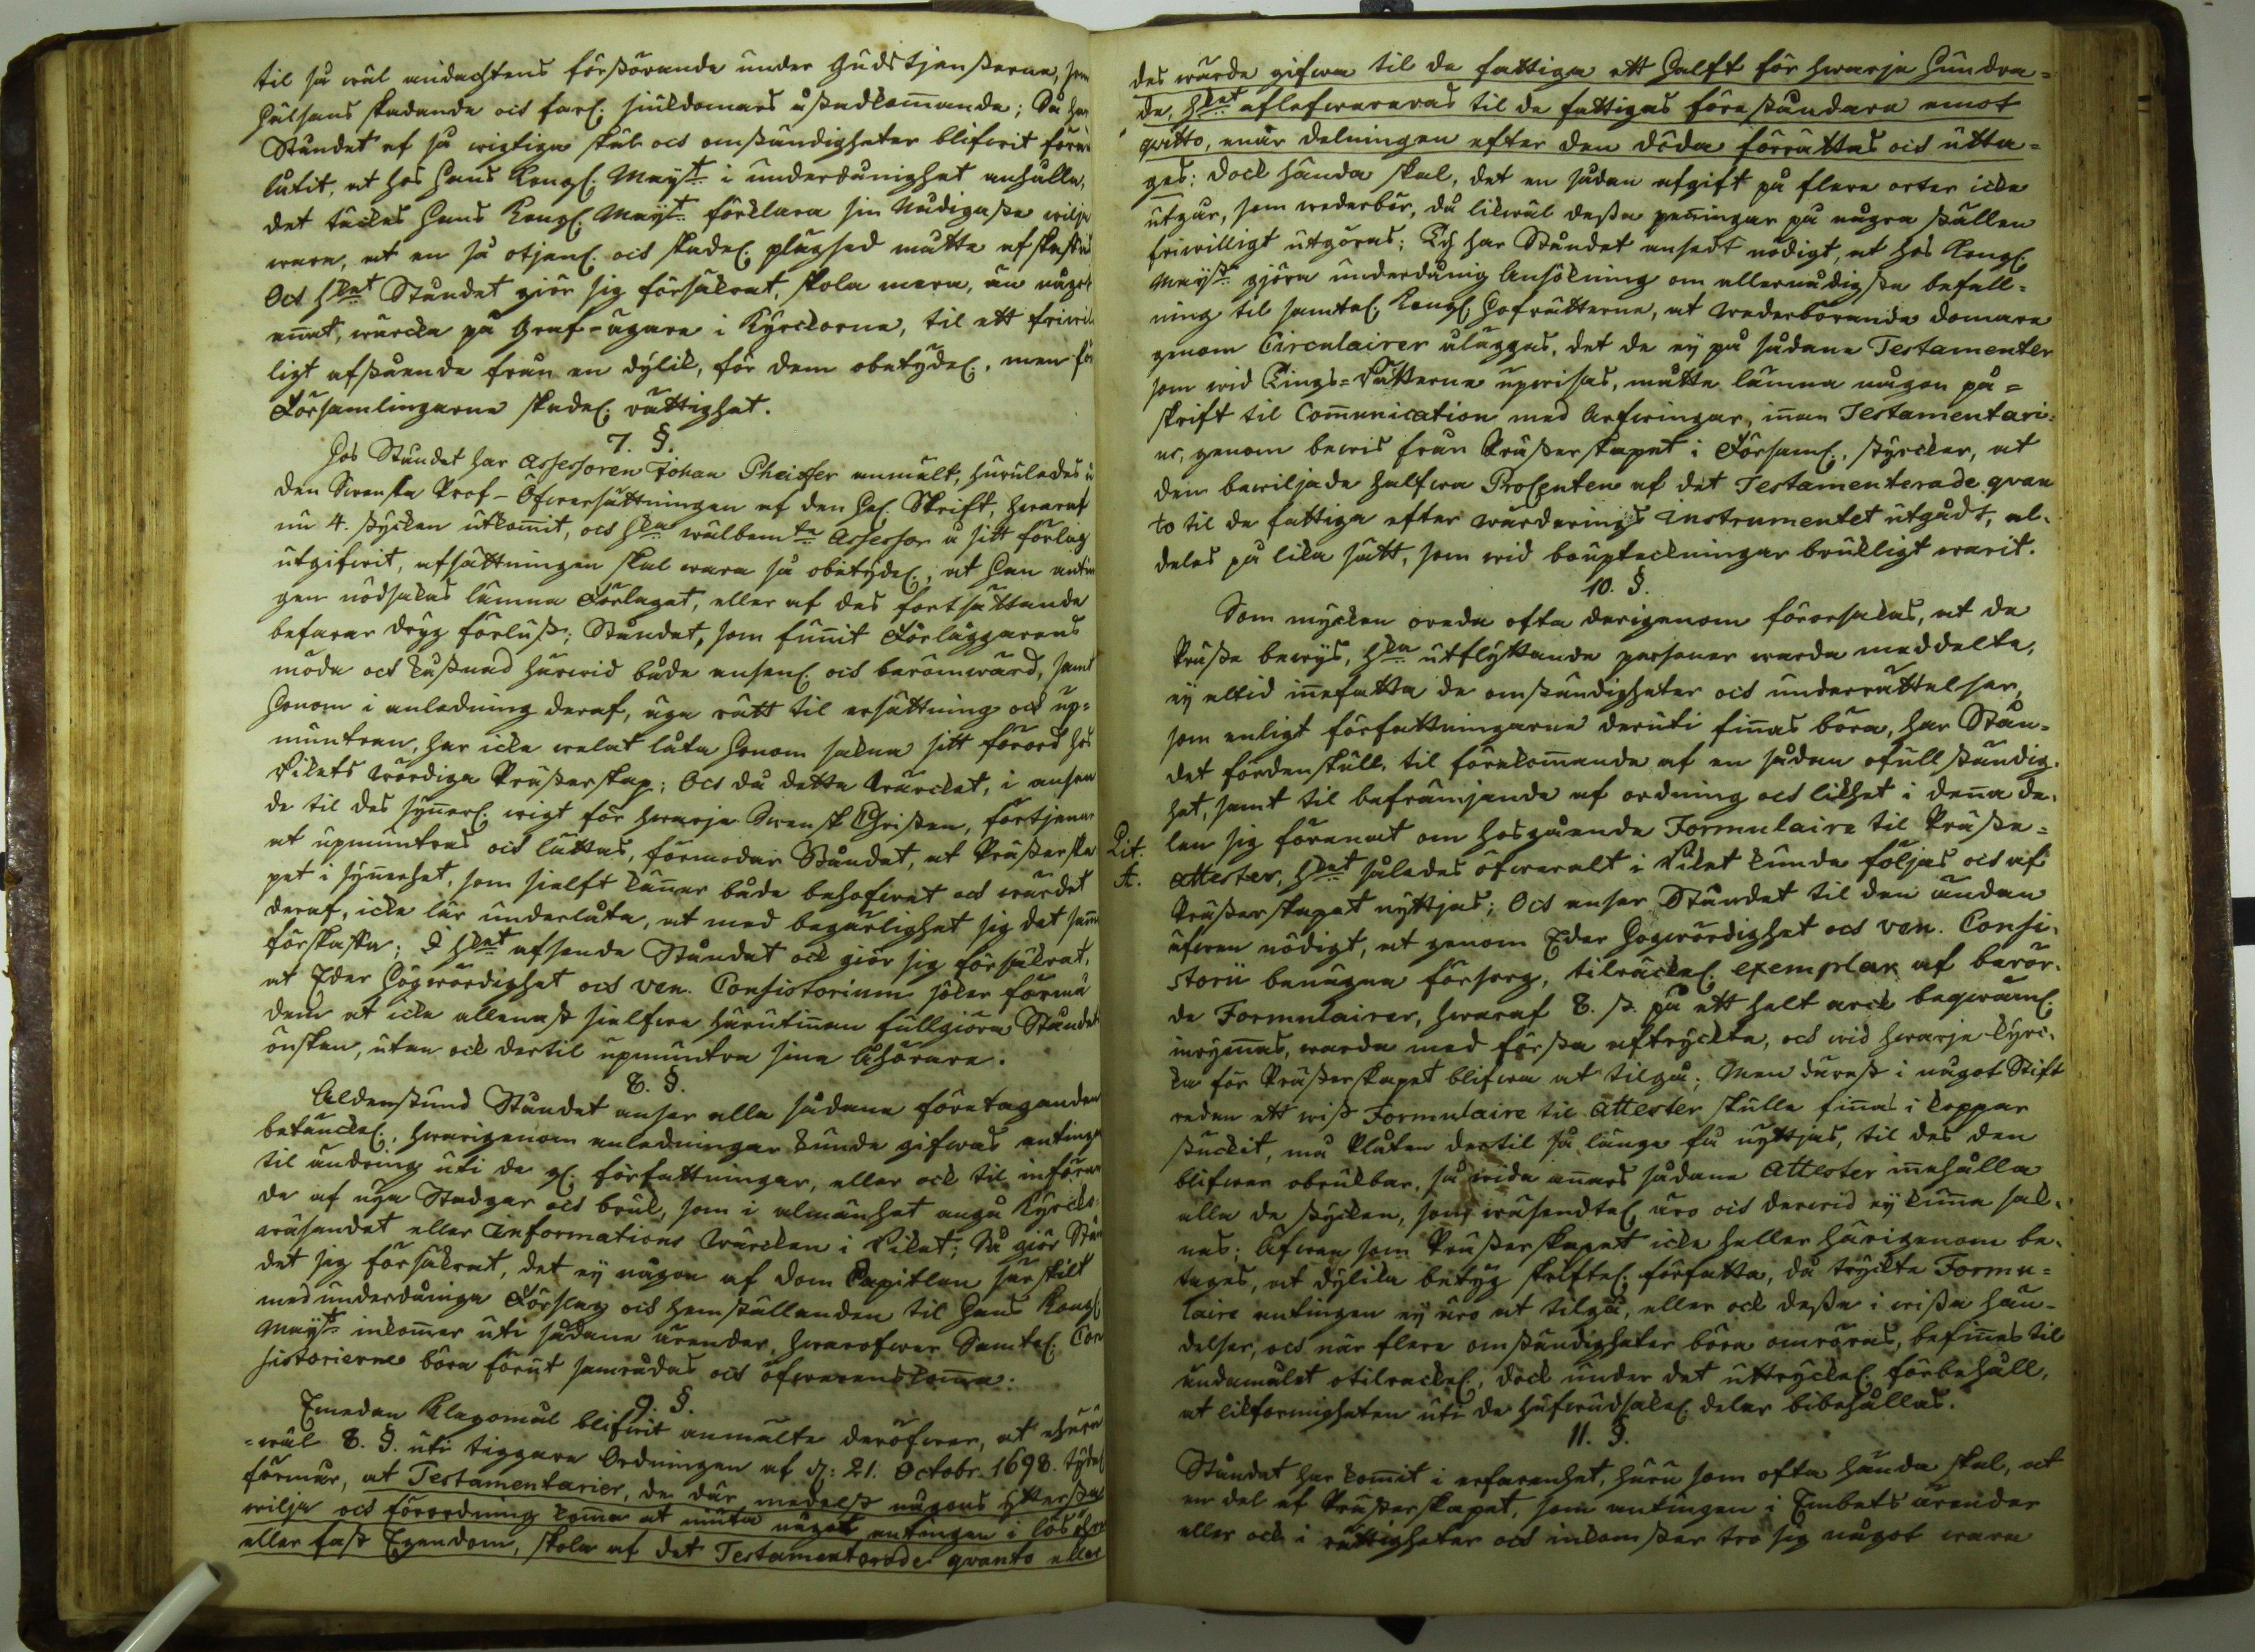 til så wäl andachtens förstörande under Gudstjensterne, som
hälsans skadande och farl: siukdomars åstadkommande; Så har
Ståndet af så wigtiga skäl och omständigheter blifwit föran
låtit, at hos Hans Kongl: Mayst:t i underdånighet anhålla,
det täcktes Hans Kongl: Mayst:t förklara sin Nådigaste wilja
wara, at en så otjenl: och skadel: plägsed måtte afskaffas
Och h:ket Ståndet giör sig försäkrat, skola mera, än något
annat, wärcka på Graf-ägare i Kyrckorne, til ett friwil
ligt afstående från en dylik, för dem obetydel:, men för
Församlingarne skadel: rättighet.
7. §.
Hos Ståndet har Assessoren Johan Pheiffer anmält, huruledes å
den Swenska Prof-Öfwersättningen af den Hel: Skrift, hwaraf
nu 4. stycken utkommit, och h:ka wälbem:te Assessor å sitt förlag
utgifwit, afsättningen skal wara så obetydel:, at han antin
gen nödsakas lämna Förlaget, eller af des fortsättande
befarar dryg förlust; Ståndet, som funnit Förläggarens
möda och kåstnad härwid både ansenl: och berömwärd, samt
honom i anledning deraf, äga rätt til ersättning och up-
muntran, har icke welat låta honom sakna sitt förord hos
Rikets Wördiga Prästerskap; Och då detta Wärcket, i ansen
de til des synnerl: wigt för hwarje Swensk Christen, förtjenar
at upmuntras och lättas, förmodar Ståndet, at Prästerska
pet i synnerhet, som sielft känner både behofwet och wärdet
deraf, icke lär underlåta, at med begärlighet sig det samma
förskaffa; I h:ket afseende Ståndet ock giör sig försäkrat,
at Eder Högwördighet och ven. Consistorium söker förmå
dem at icke allenast sielfwe härutinnan fullgiöra Ståndets
önskan, utan ock dertil upmuntra sine Åhörare.
8. §.
Aldenstund Ståndet anser alla sådana företaganden
betänckel:, hwarigenom anledningar kunde gifwas antingen
til ändring uti de gl: författningar, eller ock til införan
de af nya Stadgar och bruk, som i almänhet angå Kyrcko
wäsendet eller Informations Wärcken i Riket; Så giör Stån
det sig försäkrat, det ey någon af Dom Capitlen särskilt
med underdåniga Förslag och hemställanden til Hans Kongl:
Mayst:t inkommer uti sådana ärender, hwaröfwer Samtel: Con
sistorierne böra förut samrådas och öfwerenskomma.
9. §.
Emedan Klagomål blifwit anmälte deröfwer, at ehuru
wäl 8. §. uti tiggare Ordningen af d: 21. Octobr. 1698. tydel
förmår, at Testamentarier, de där medelst någons ytterste
wilja och förordning komma at niuta något antingen i lös öre
eller fast Egendom, skola af det Testamenterade quanto eller
des wärde gifwa til de fattiga ett halft för hwarje hundra-
de, h:ket aflefwereras til de fattigas föreståndare emot
qvitto, enär delningen efter den döda förrättas och utta-
ges: dock hända skal, det en sådan afgift på flere orter icke
utgår, som wederbör, då likwäl dessa penningar på några ställen
friwilligt utgöras; Ty har Ståndet ansedt nödigt, at hos Kongl:
Mayst:t giöra underdånig Ansökning om allernådigste befall-
ning til samtel: Kongl: Hofrätterne, at wederbörande domare
genom Circulairer åläggas, det de ey på sådane Testamenter
som wid Tings-Rätterne upwisas, måtte lämna någon på-
skrift til Communication med Arfwingar, innan Testamentari-
er, genom bewis från Prästerskapet i Församl:, styrcker, at
den bewiljade halfwa ProCenten af det Testamenterade quan
to til de fattiga efter wärderings instrumentet utgådt, al-
deles på lika sätt, som wid bouptekningar brukligt warit.
10. §.
Som mycken oreda ofta derigenom förorsakas, at de
Präste bewys, h:ka utflyttande personer warda meddelte,
ey altid innefatta de omständigheter och underrättelser,
som enligt författningarne deruti finnas böra, har Stån-
det fördenskull, til förekommande af en sådan ofullständig-
het, samt til befrämjande af ordning och likhet i denna de-
len sig förenat om hosgående Formulaire til Präste-
Lit.
A.
attester, h:ket således öfweralt i Riket kunde följas och af
Prästerskapet nyttjas; Och anser Ståndet til den ändan
äfwen nödigt, at genom Eder Högwördighet och ven. Consi-
storii benägna försorg, tilräckel: exemplar af berör-
de Formulairer, hwaraf 8. st. på ett helt arck beqwäml:
inrymas, warda med första aftryckte, och wid hwarje Kyrc-
ka för Prästerskapet blifwa at tilgå; Men därest i något Stift
redan ett wist Formulaire til Attester skulle finnas i koppar
stuckit, må Plåten dertil så länge få nyttjas, til des den
blifwer obrukbar, så wida annars sådane Attester innehålla
alla de stycken, som wäsendtel: äro och derwid ey kunna sak-
nas; Äfwen som Prästerskapet icke heller härigenom be-
tages, at dylika betyg skriftel: författa, då tryckte Formu-
laire antingen ey äro at tilgå, eller ock dessa i wissa hän-
delser, och när flere omständigheter böra omröras, befinnes til
ändamålet otilräckel:, dock under det uttryckel: förbehåll,
at likformigheten uti de hufwudsakel: delar bibehålles.
11. §.
Ståndet har kommit i erfarenhet, huru som ofta hända skal, at
en del af Prästerskapet, som antingen i Embets ärender
eller ock i rättigheter och inkomster tro sig något wara